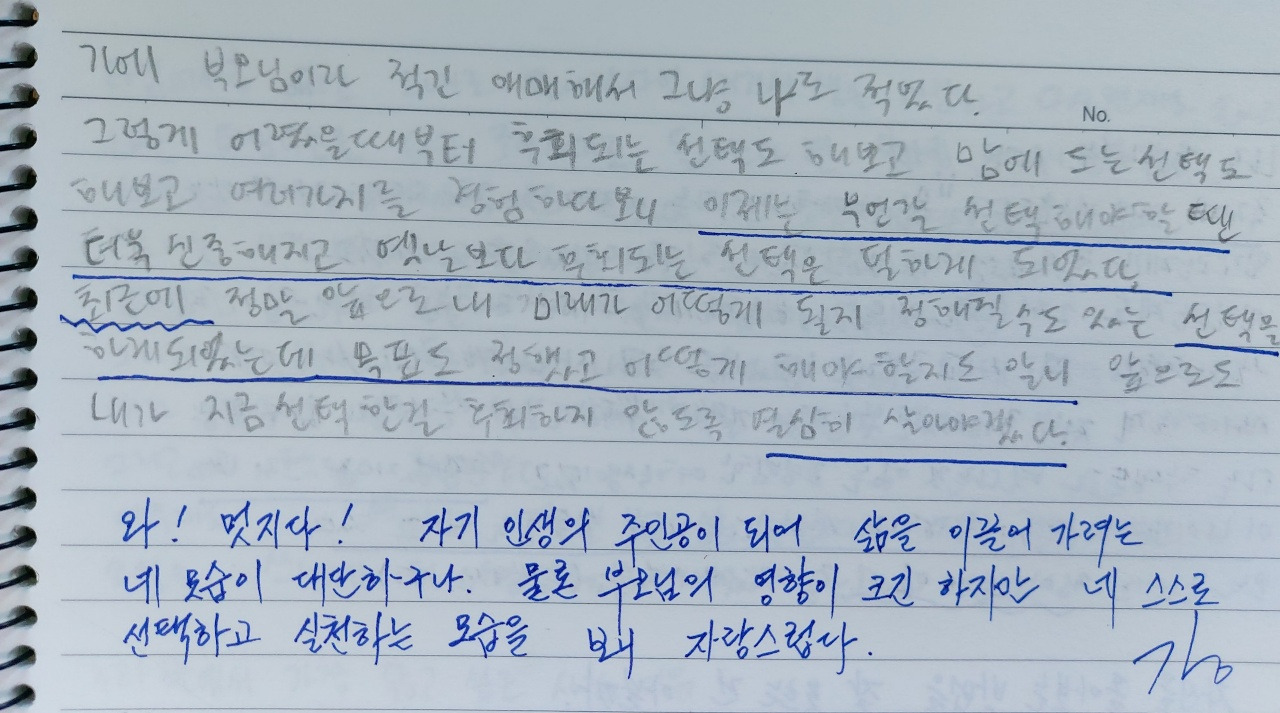 기에 부모님이라 적긴 애매해서 그냥 나로 적었다.
No.
그렇게 어렸을때부터 후회되는 선택도 해보고 맘에 드는선택도
해보고 여러가지를 경험하다보니 이제는 무언갈 선택해야할 땐
더욱 신중해지고 옛날보다 후회되는 선택은 덜하게 되었다.
최근에 정말 앞으로 내 미래가 어떻게 될지 정해질수도 있는 선택을
하게되었는데 목표도 정했고 어떻게 해야 할지도 알니 앞으로도
내가 지금선택한걸 후회하지 않도록 열심히 살아야겠다.
와! 멋지다! 자기 인생의 주인공이 되어 삶을 이끌어 가려는
네 모습이 대단하구나. 물론 부모님의 영향이 크긴 하지만 네 스스로
선택하고 실천하는 모습을 보니 자랑스럽다.